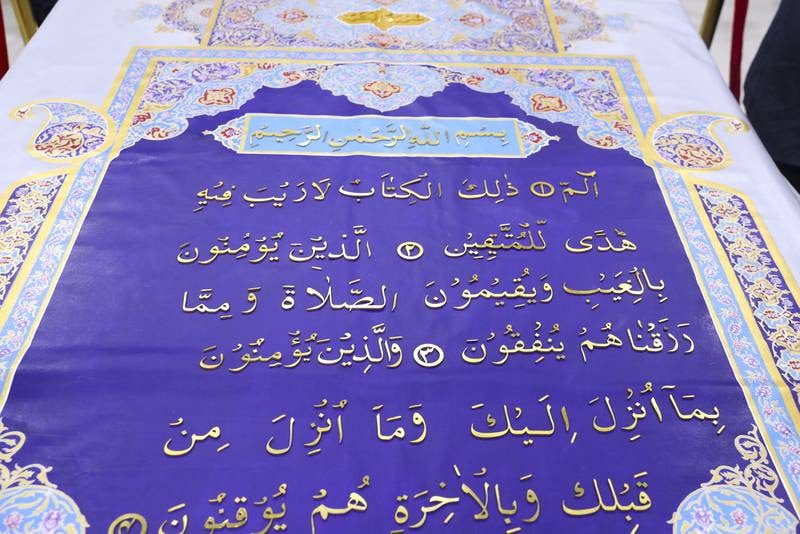 بِسْمِ اللَّهِ الرَّحْمٰنِ الرَّحِيمِ
الٓمٓ ١ ذٰلِكَ الْكِتَابُ لَا رَيْبَ فِيهِ
هُدًى لِّلْمُتَّقِينَ ٢ الَّذِينَ يُؤْمِنُونَ
بِالْغَيْبِ وَيُقِيمُونَ الصَّلَاةَ وَمِمَّا
رَزَقْنَاهُمْ يُنْفِقُونَ ٣ وَالَّذِينَ يُؤْمِنُونَ
بِمَا أُنْزِلَ إِلَيْكَ وَمَا أُنْزِلَ مِنْ
قَبْلِكَ وَبِالْآخِرَةِ هُمْ يُوقِنُونَ ٤